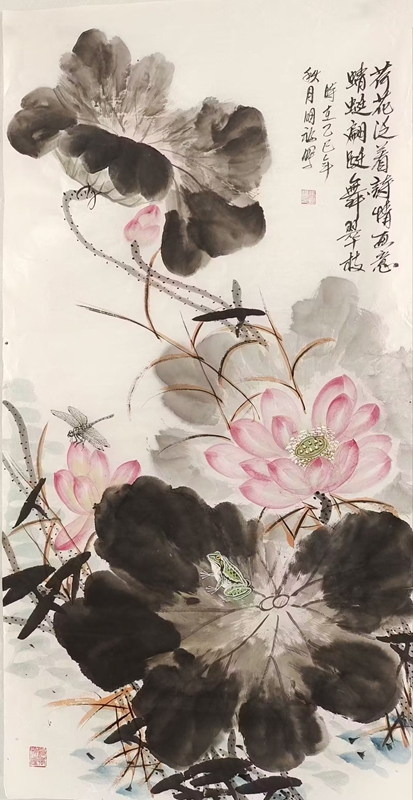 荷花泛着詩情画意
蜻蜓翩跹舞翠枝
時在乙巳年
秋月